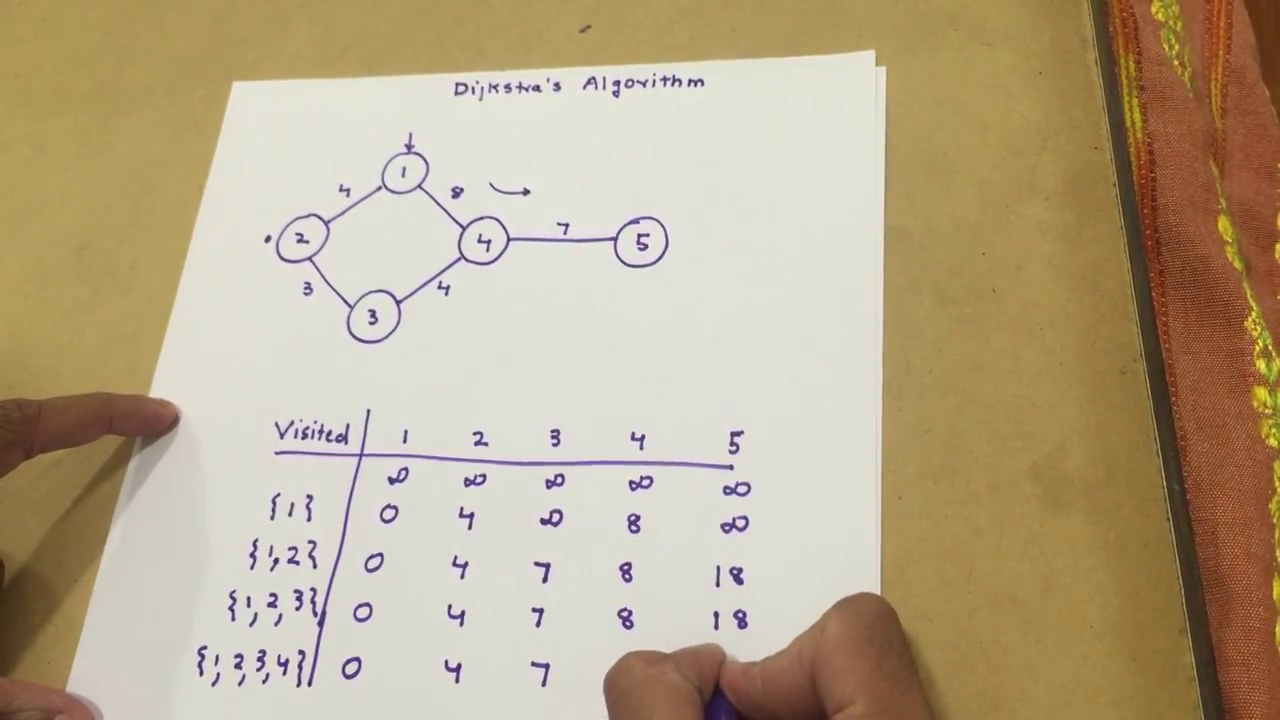 Dijkstra's Algorithm
1
4 8
2 4 7 5
3 4
3
Visited 1 2 3 4 5
∞ ∞ ∞ ∞ ∞
{1} 0 4 ∞ 8 ∞
{1,2} 0 4 7 8 18
{1,2,3} 0 4 7 8 18
{1,2,3,4} 0 4 7